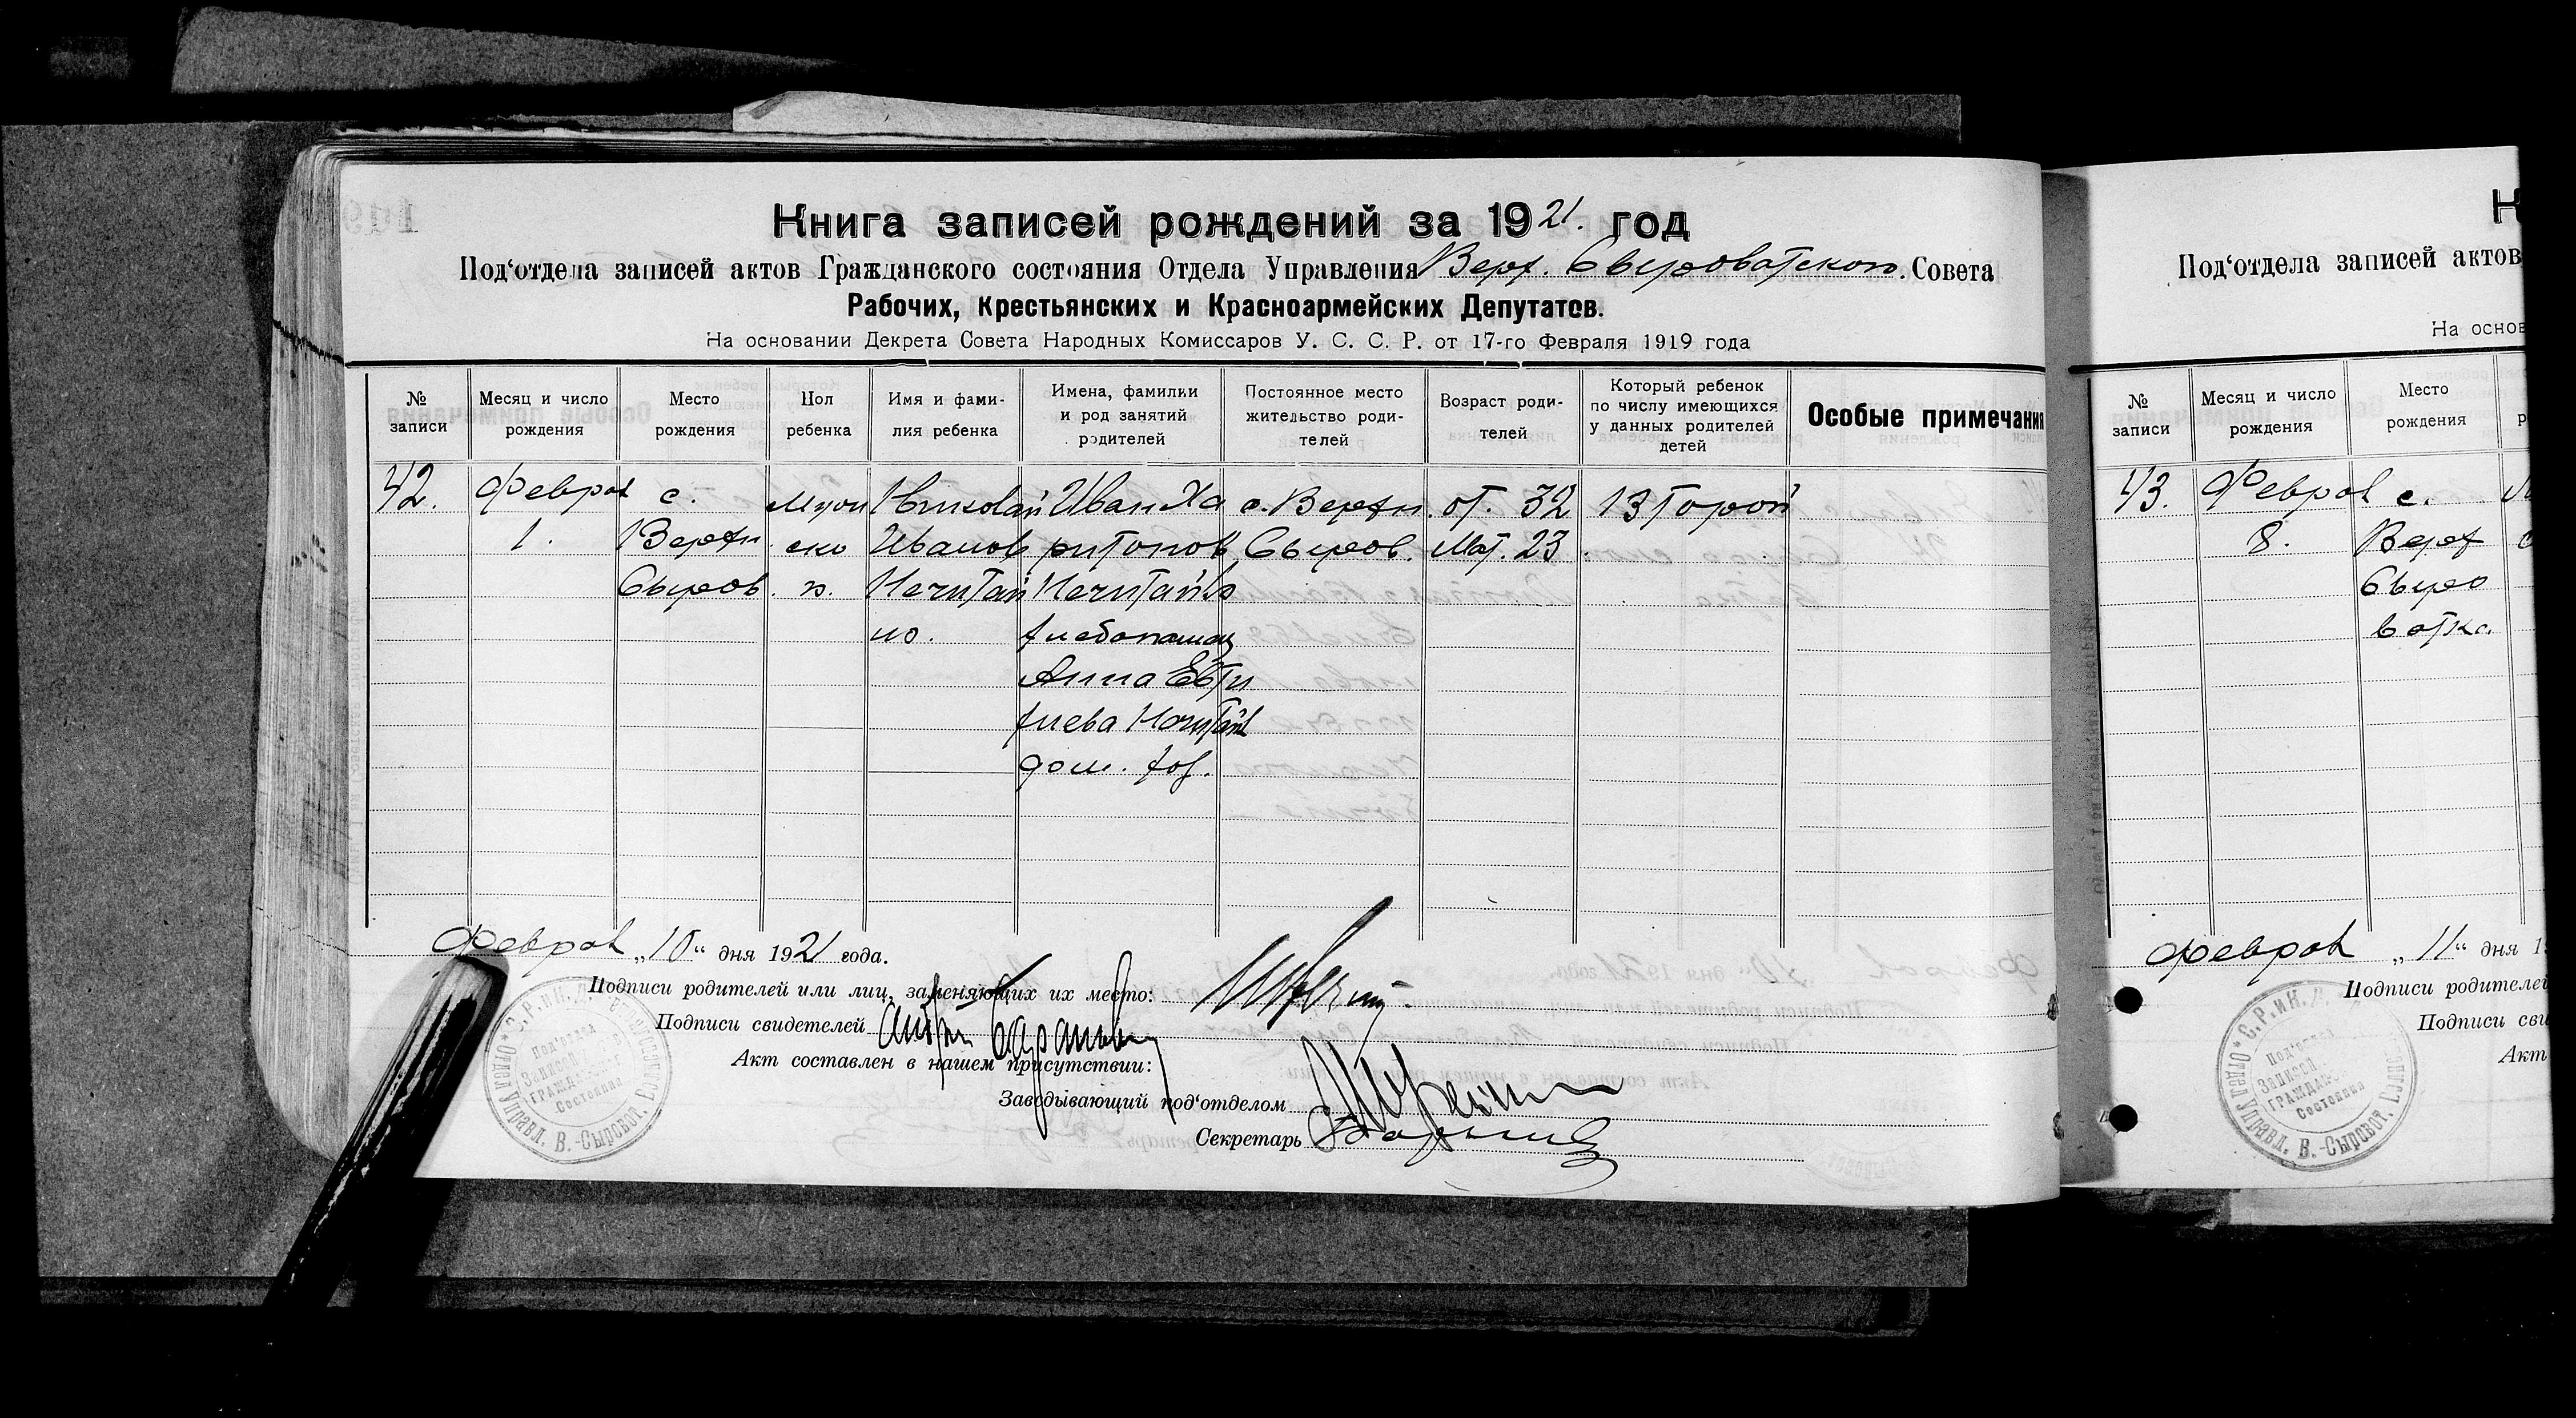 Книга записей рождений за 1921. год
Под'отдела записей актов Гражданского состояния Отдела Управления Верх. Сыроватского. Совета
Рабочих, Крестьянских и Красноармейских Депутатов.
На основании Декрета Совета Народных Комиссаров У. С. С. Р. от 17-го Февраля 1919 года
№ записи
Месяц и число рождения
Место рождения
Пол ребенка
Имя и фами-
лия ребенка
Имена, фамилии
и род занятий
родителей
Постоянное место
жительство роди-
телей
Возраст роди-
телей
Который ребенок
по числу имеющихся
у данных родителей
детей
Особые примечания
42.
Феврал
1.
с.
Верхн.
Сыров.
Мужс
ско
п.
Николай
Иванов
Нечитай
ло.
Иван Ха
ритонов
Нечитайло
хлебопашец
Анна Евти
хиева Нечитайл
дом. хоз.
с. Верхн.
Сыров.
от. 32
мат. 23
Второй
Феврал „10“ дня 1921 года.
Подписи родителей или лиц, заменяющих их место:
Подписи свидетелей
Акт составлен в нашем присутствии:
Заведывающий под'отделом
Секретарь
Отдел Управл. В.-Сыроват.
Под'отдел
Записей
Гражданс
Состояния
Под'отдела записей актов
На основ
№ записи
Месяц и число
рождения
Место
рождения
43.
Феврал
8.
с.
Верх
Сыро
ватка.
Феврал „11“ дня 1
Подписи родителей
Подписи сви
Акт
Отдел Управл. В.-Сыроват.
Под'отдел
Записей
Граждан
Состояния